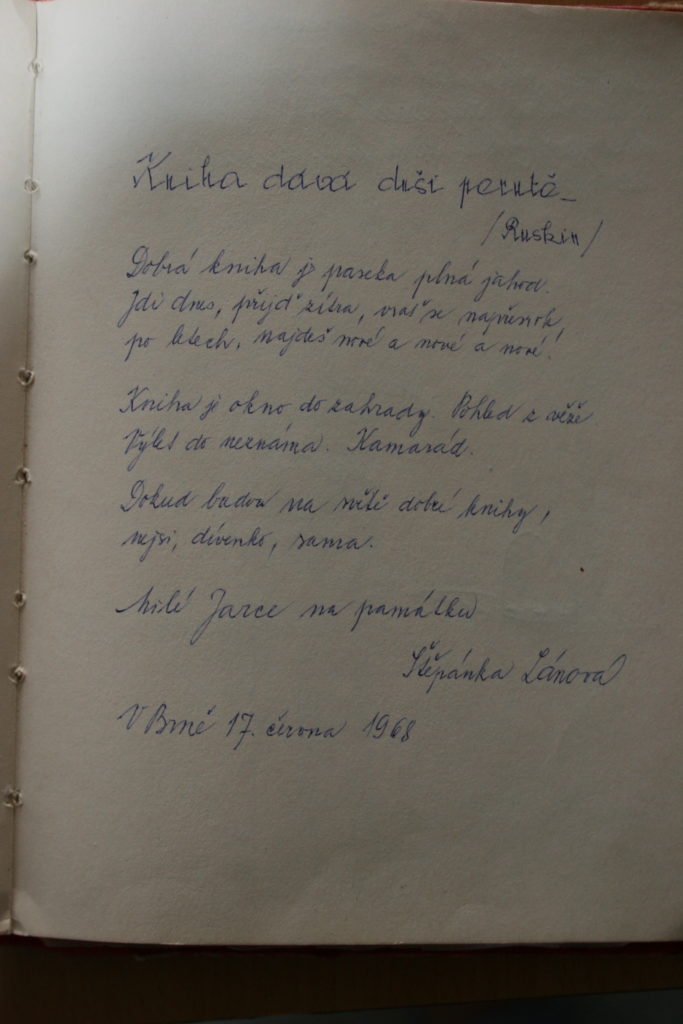 Kniha dává duši perutě_
/Ruskin/
Dobrá kniha je paseka plná jahod.
Jdi dnes, přijď zítra, vrať se napřesrok,
po letech, najdeš nové a nové a nové!
Kniha je okno do zahrady. Pohled z věže.
Výlet do neznáma. Kamarád.
Dokud budou na světě dobré knihy,
nejsi, děvenko, sama.
Milé Jarce na památku
Štěpánka Lánová
V Brně 17. června 1968